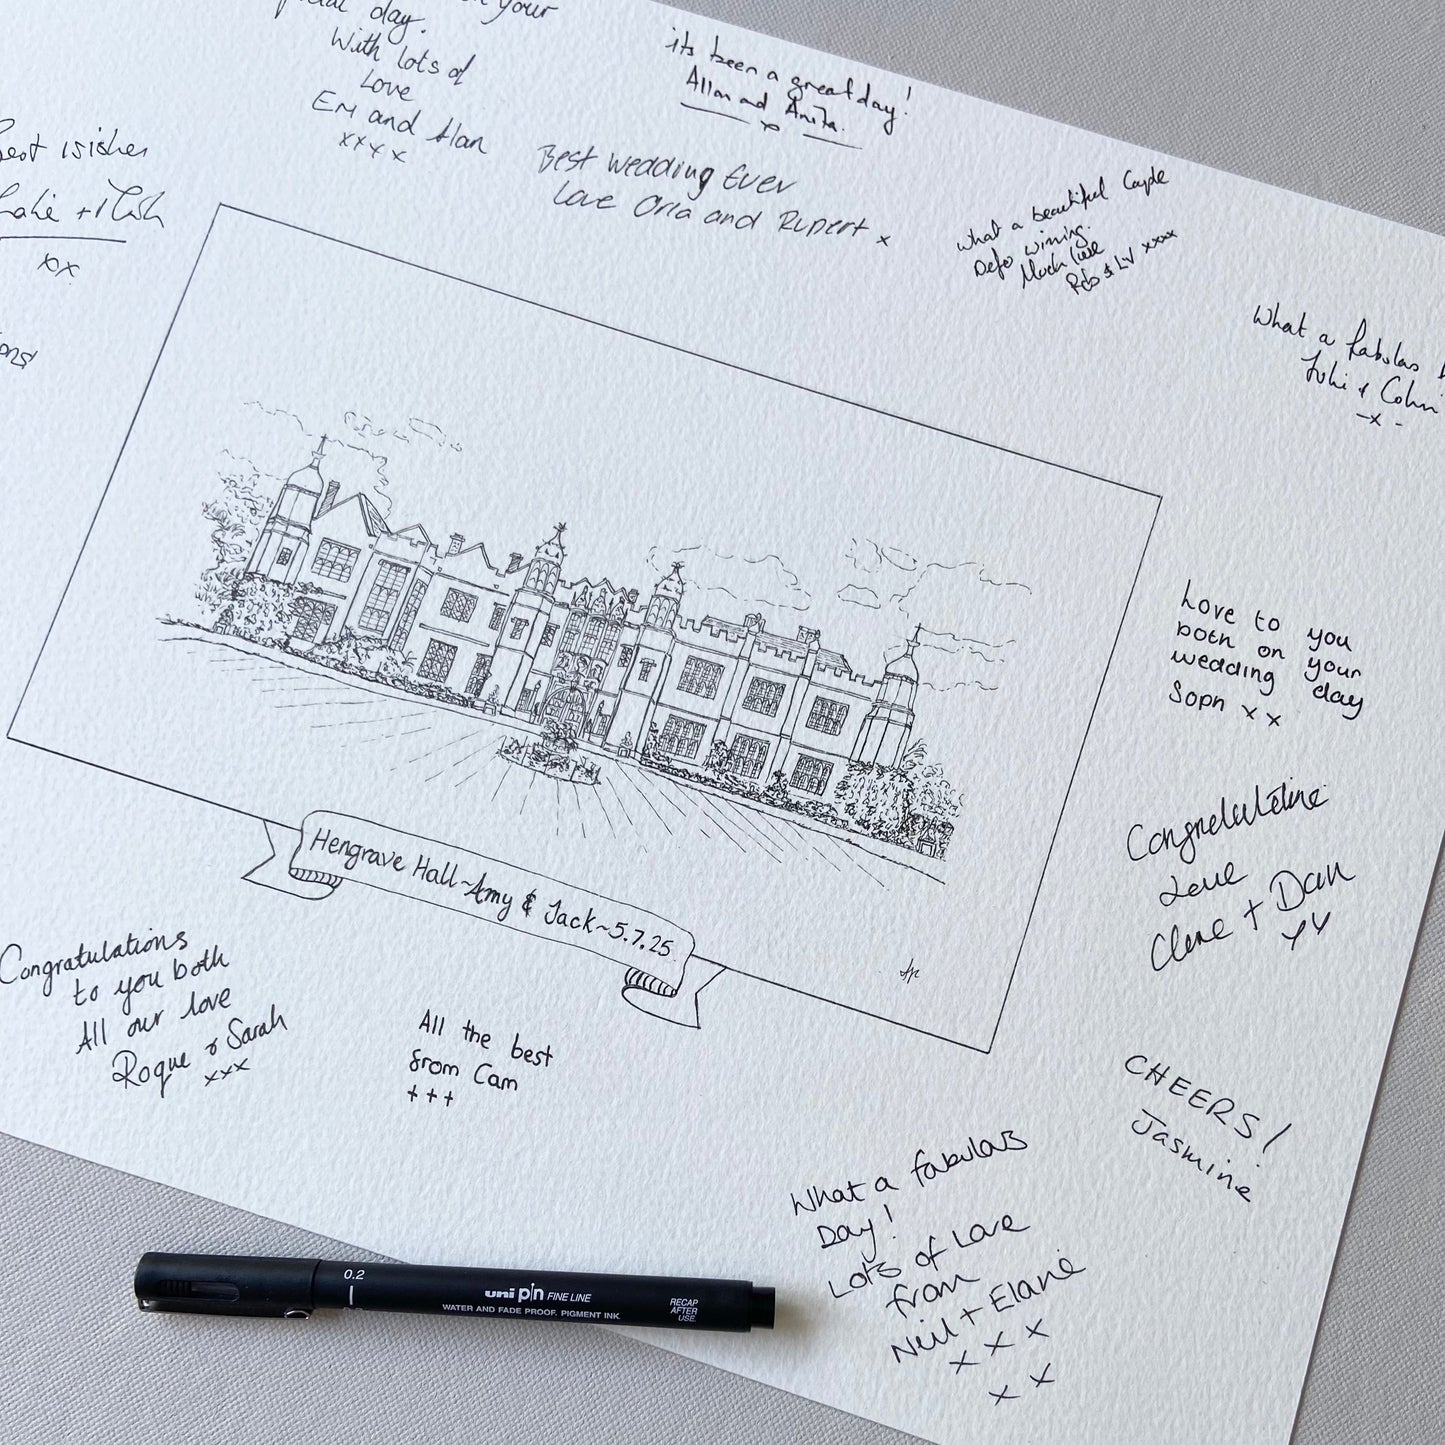 day.
With lots of
Love
Em and Alan
xxxx
its been a great day!
Allan and Anita.
x
Best wedding Ever
Love Orla and Rupert x
What a beautiful
Defo wining.
Much love
Rob & Liv xxxx
Best wishes
xx
What a fabulas
Juhi & Colin
-x-
Love to you
both on your
wedding day
Soph x x
Love
Clare + Dan
xx
Hengrave Hall~Amy & Jack~5.7.25.
Congratulations
to you both
All our love
Roque & Sarah
xxx
All the best
from Cam
+++
CHEERS!
Jasmine
What a fabulas
Day!
Lots of Love
from
Neil + Elaine
x x x
x x
0.2
uni pin FINE LINE
WATER AND FADE PROOF. PIGMENT INK.
RECAP
AFTER
USE.